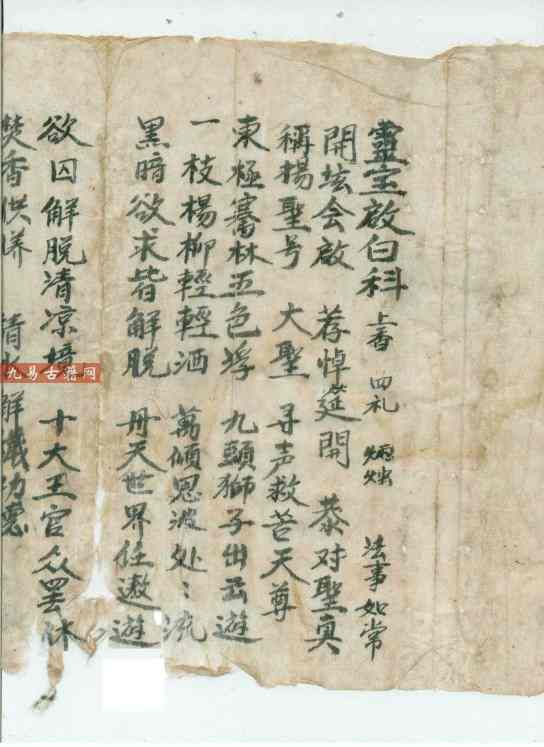 靈宝啟白科 上香 四礼 法事如常
開坛会啟 荐悼筵開 恭对聖真
稱楊聖号 大聖 寻声救苦天尊
東極騫林五色浮 九頭獅子出云遊
一枝楊柳輕輕洒 萬傾恩波处：流
黑暗欲求皆解脱 丹天世界任遨遊
欲囚解脫清凉境 十大王官众罢休
焚香供养 清 解
九易古籍网